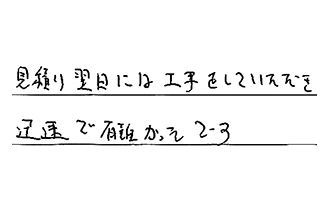 見積り翌日には工事をしていただき
迅速で有難かった